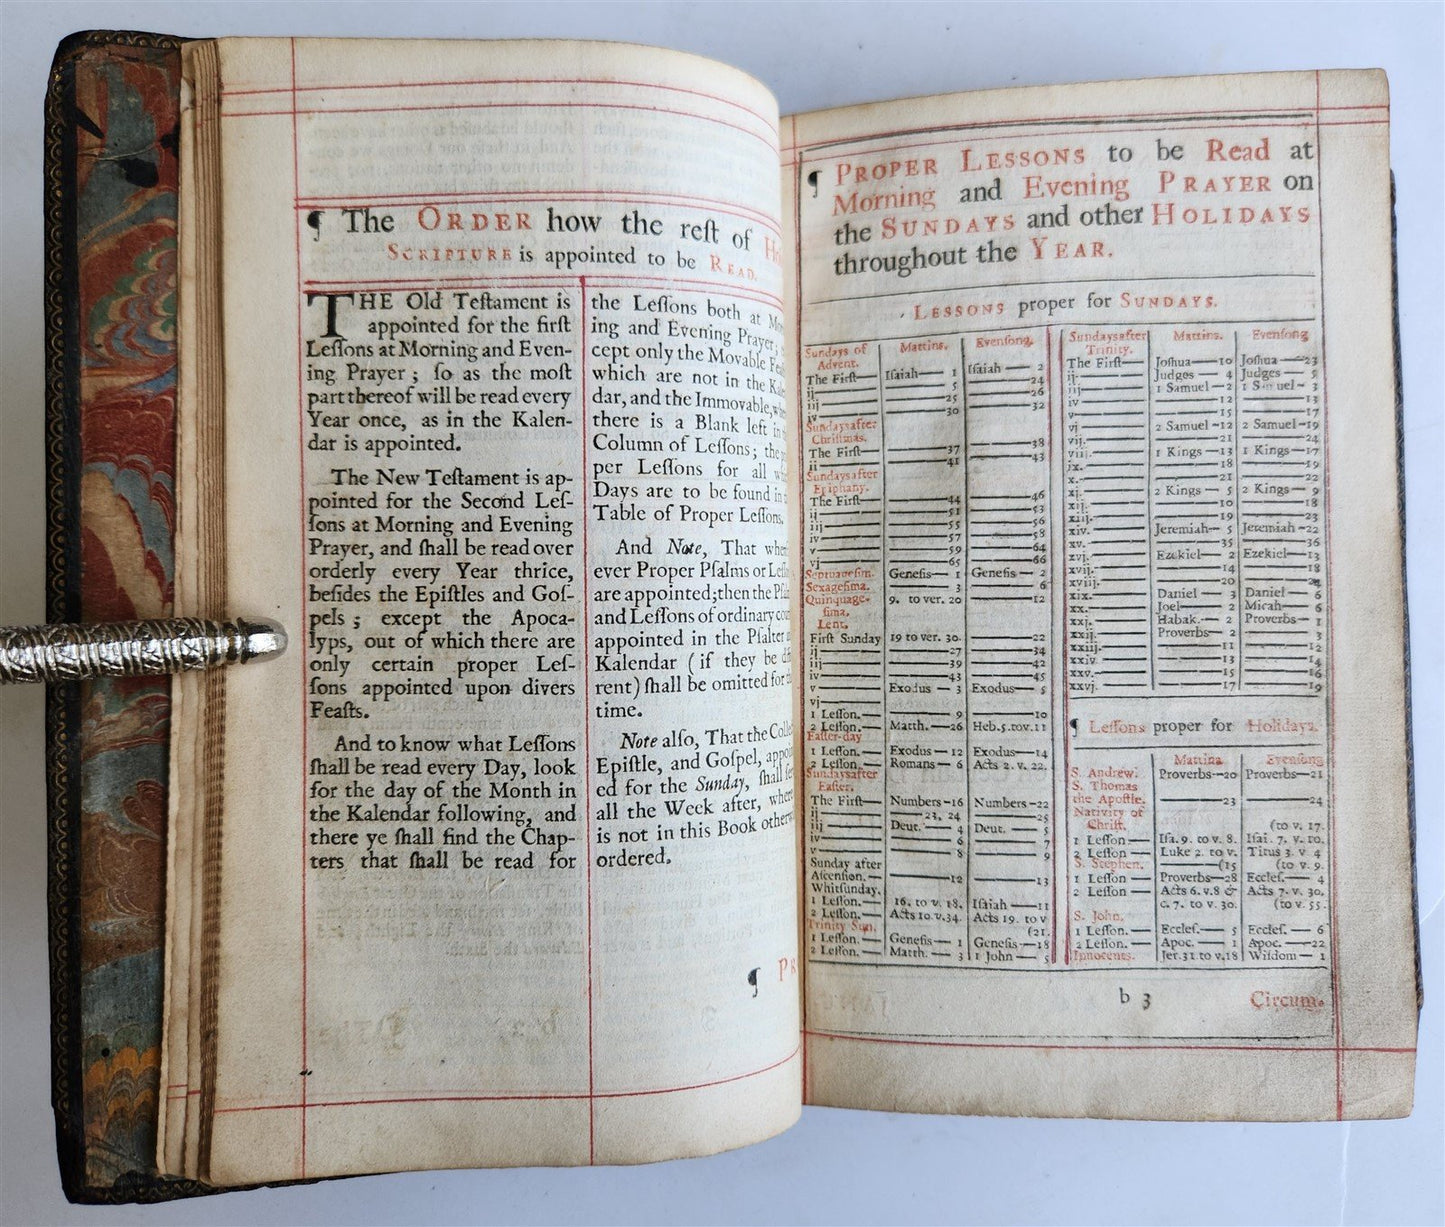 ¶ The ORDER how the reſt of
SCRIPTURE is appointed to be READ.
THE Old Teſtament is
appointed for the firſt
Leſſons at Morning and Even-
ing Prayer ; ſo as the moſt
part thereof will be read every
Year once, as in the Kalen-
dar is appointed.
The New Teſtament is ap-
pointed for the Second Leſ-
ſons at Morning and Evening
Prayer, and ſhall be read over
orderly every Year thrice,
beſides the Epiſtles and Goſ-
pels ; except the Apoca-
lyps, out of which there are
only certain proper Leſ-
ſons appointed upon divers
Feaſts.
And to know what Leſſons
ſhall be read every Day, look
for the day of the Month in
the Kalendar following, and
there ye ſhall find the Chap-
ters that ſhall be read for
the Leſſons both at
ing and Evening Prayer;
cept only the Movable
which are not in the
dar, and the Immovable,
there is a Blank left in
Column of Leſſons; the
per Leſſons for all
Days are to be found in
Table of Proper Leſſons.
And Note, That
ever Proper Pſalms or
are appointed;then the
and Leſſons of ordinary
appointed in the Pſalter
Kalendar ( if they be
rent) ſhall be omitted for
time.
Note alſo, That the
Epiſtle, and Goſpel,
ed for the Sunday, ſhall
all the Week after,
is not in this Book
ordered.
¶ P
¶ PROPER LESSONS to be Read at
Morning and Evening PRAYER on
the SUNDAYS and other HOLIDAYS
throughout the YEAR.
LESSONS proper for SUNDAYS.
Sundays of Mattins. Evenſong.
Advent.
The Firſt— Iſaiah— 1 Iſaiah— 2
ij 5 24
iij 25 26
iv 30 32
Sundays after
Chriſtmas.
The Firſt— 37 38
ii 41 43
Sundays after
Epiphany.
The Firſt— 44 46
ij 51 53
iij 55 56
iv 57 58
v 59 64
vj 65 66
Septuageſim. Geneſis— 1 Geneſis— 2
Sexageſima. 3 6
Quinquage- 9. to ver. 20 12
ſima.
Lent.
Firſt Sunday 19 to ver. 30. 22
ij 27 34
iij 39 42
iv 43 45
v Exodus — 3 Exodus— 5
vj
1 Leſſon.— 9 10
2 Leſſon.— Matth. —26 Heb.5.to v.11
Eaſter-day
1 Leſſon.— Exodus — 12 Exodus—14
2 Leſſon.— Romans — 6 Acts 2. v. 22.
Sundays after
Eaſter.
The Firſt— Numbers -16 Numbers -22
ij 23, 24 25
iij Deut. — 4 Deut. — 5
iv 6 7
v 8 9
Sunday after
Aſcenſion.— 12 13
Whitſunday.
1 Leſſon.— 16. to v. 18. Iſaiah —11
2 Leſſon.— Acts 10.v.34. Acts 19. to v
Trinity Sun. (21.
1 Leſſon.— Geneſis— 1 Geneſis—18
2 Leſſon.— Matth. — 3 1 John — 5
Sundays after Mattins. Evenſong
Trinity.
The Firſt— Joſhua—10 Joſhua—23
ij Judges — 4 Judges — 5
iij 1 Samuel— 2 1 Samuel— 3
iv 12 13
v 15 17
vj 2 Samuel —12 2 Samuel—19
vij. 21 24
viij. 1 Kings —13 1 Kings—17
ix. 18 19
x. 21 22
xj. 2 Kings — 5 2 Kings — 9
xij. 10 18
xiij. 19 23
xiv. Jeremiah— 5 Jeremiah —22
xv. 35 36
xvj. Ezekiel— 2 Ezekiel—13
xvij. 14 18
xviij. 20 24
xix. Daniel — 3 Daniel — 6
xx. Joel — 2 Micah — 6
xxj. Habak.— 2 Proverbs— 1
xxij. Proverbs— 2 3
xxiij. 11 12
xxiv. 13 14
xxv. 15 16
xxvj. 17 19
¶ Leſſons proper for Holidays.
Mattins Evenſong
S. Andrew. Proverbs—20 Proverbs—21
S. Thomas
the Apoſtle. 23 24
Nativity of
Chriſt. (to v. 17.
1 Leſſon — Iſa. 9. to v. 8. Iſai. 7. v. 10.
2 Leſſon — Luke 2. to v. Titus 3. v 4
S. Stephen. (15 (to v. 9.
1 Leſſon Proverbs—28 Eccleſ. — 4
2 Leſſon — Acts 6. v.8 & Acts 7. v. 30.
c. 7. to v. 30. (to v. 55.
S. John.
1 Leſſon. — Eccleſ. — 5 Eccleſ. — 6
2 Leſſon. — Apoc. — 1 Apoc. —22
Innocents. Jer.31 to v.18 Wiſdom — 1
b 3 Circum-